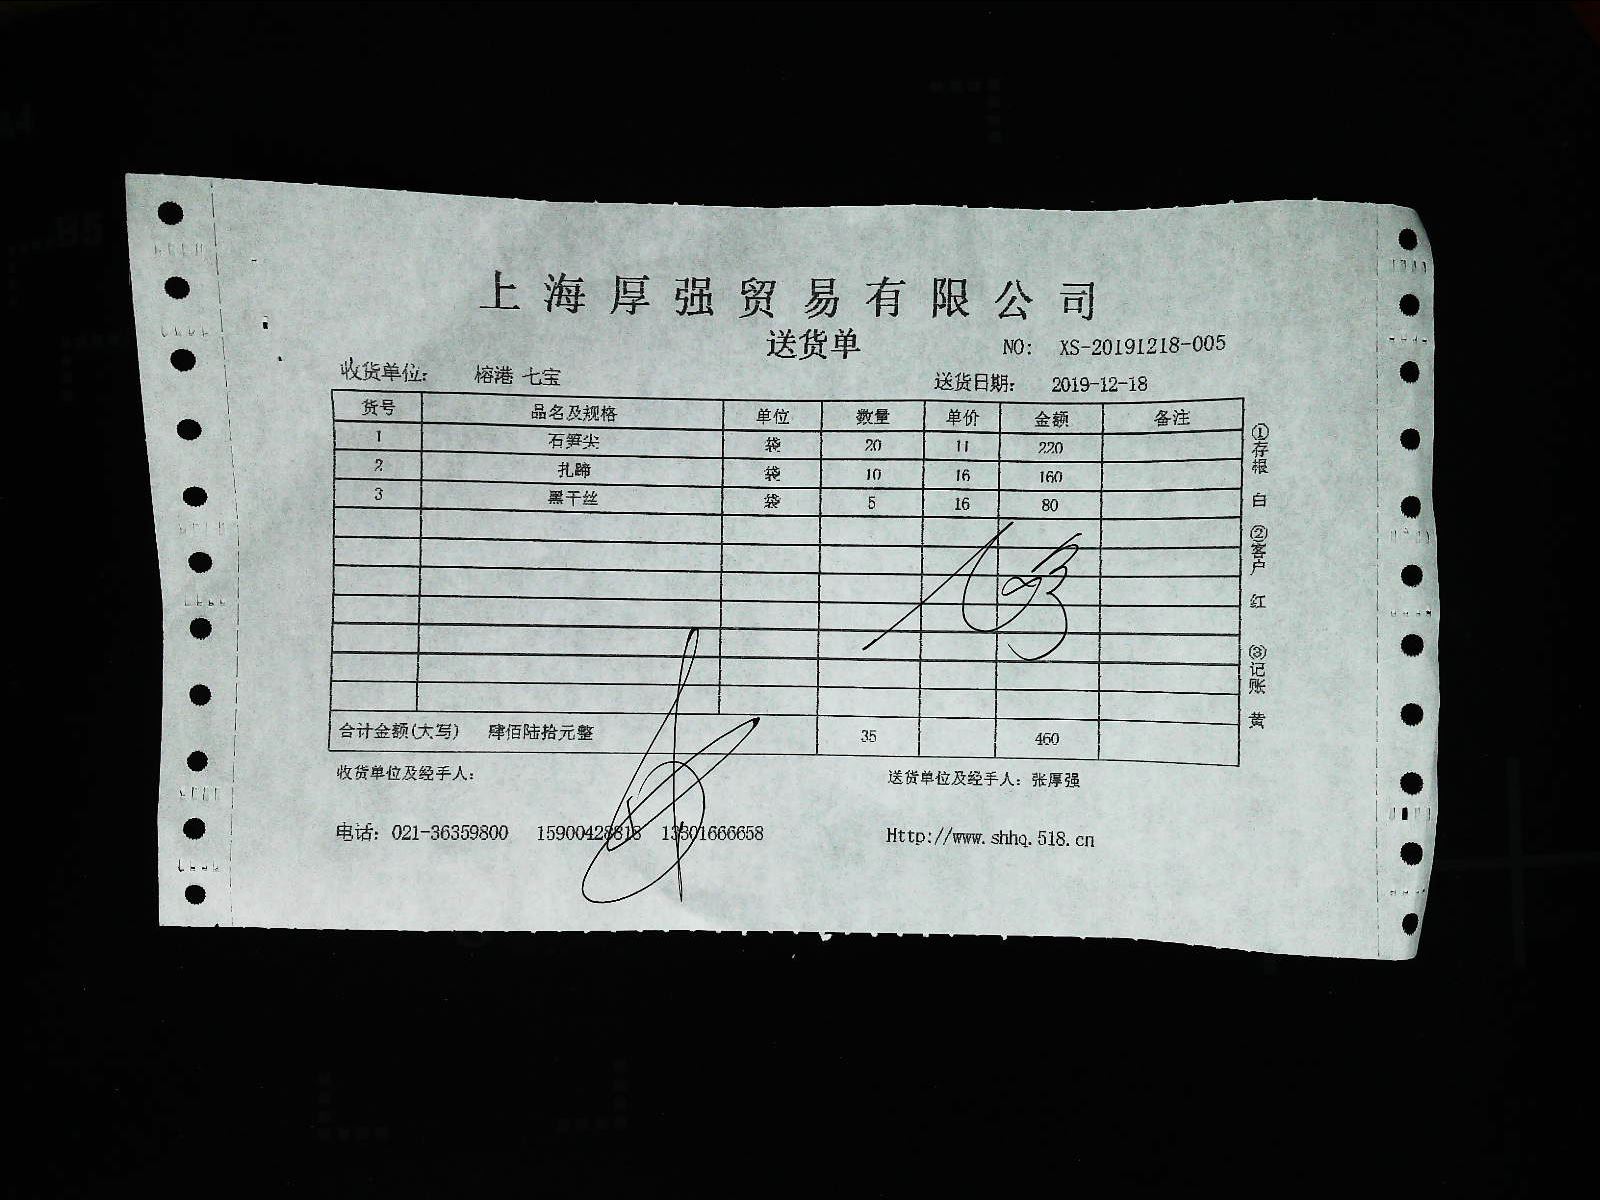 上海厚强贸易有限公司
送货单
NO: XS-20191218-005
收货单位: 榕港 七宝 送货日期: 2019-12-18
货号 品名及规格 单位 数量 单价 金额 备注
1 石笋尖 袋 20 11 220
2 扎蹄 袋 10 16 160
3 黑干丝 袋 5 16 80
合计金额(大写) 肆佰陆拾元整 35 460
收货单位及经手人: 送货单位及经手人: 张厚强
电话: 021-36359800 15900428818 13301666658 Http://www.shhq.518.cn
①存根 白 ②客户 红 ③记账 黄